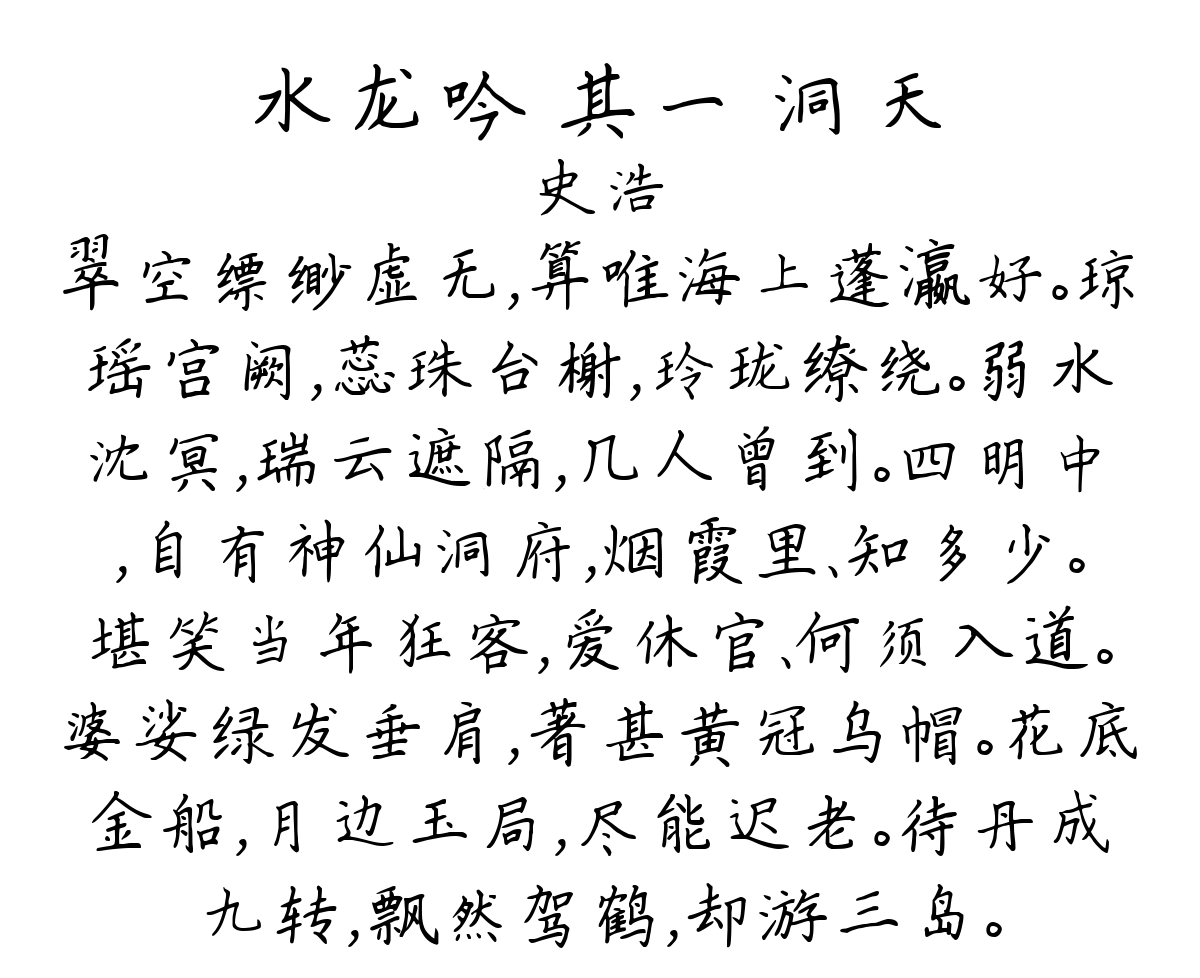 水龙吟 其一 洞天
史浩
翠空缥缈虚无,算唯海上蓬瀛好。琼
瑶宫阙,蕊珠台榭,玲珑缭绕。弱水
沈冥,瑞云遮隔,几人曾到。四明中
,自有神仙洞府,烟霞里、知多少。
堪笑当年狂客,爱休官、何须入道。
婆娑绿发垂肩,著甚黄冠乌帽。花底
金船,月边玉局,尽能迟老。待丹成
九转,飘然驾鹤,却游三岛。